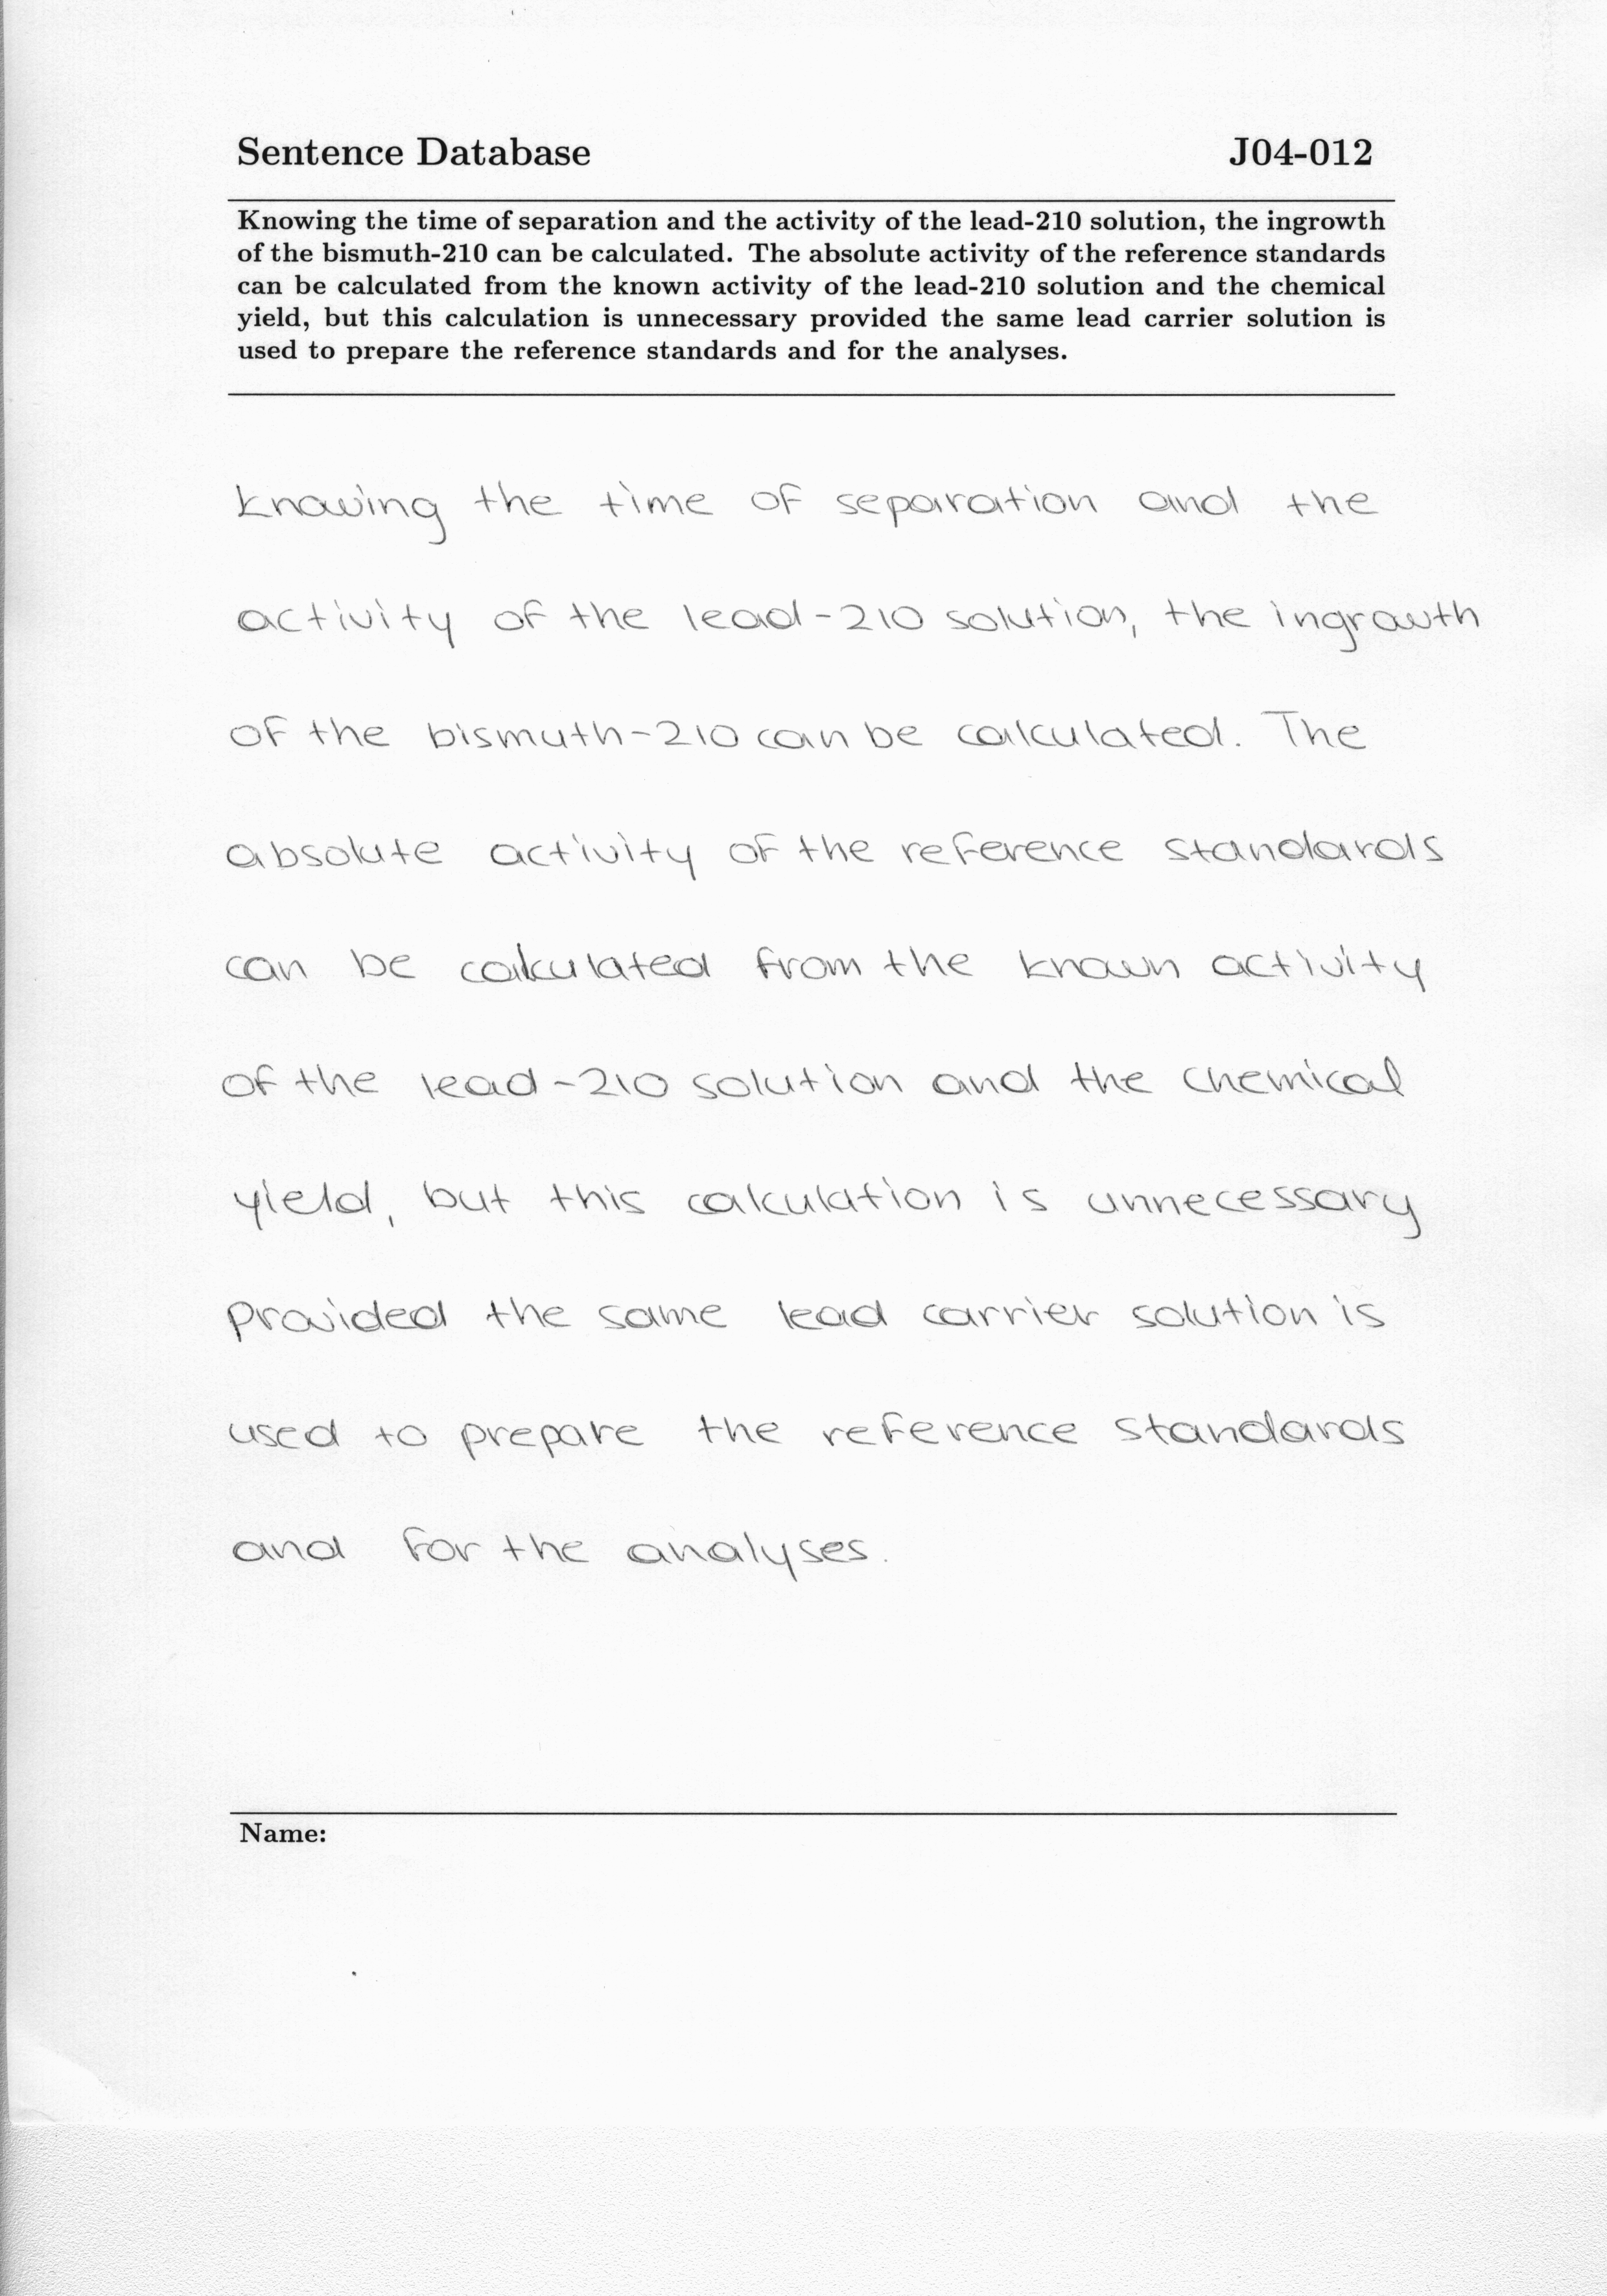 Sentence Database J04-012
Knowing the time of separation and the activity of the lead-210 solution, the ingrowth
of the bismuth-210 can be calculated. The absolute activity of the reference standards
can be calculated from the known activity of the lead-210 solution and the chemical
yield, but this calculation is unnecessary provided the same lead carrier solution is
used to prepare the reference standards and for the analyses.
Knowing the time of separation and the
activity of the lead-210 solution, the ingrowth
of the bismuth-210 can be calculated. The
absolute activity of the reference standards
can be calculated from the known activity
of the lead-210 solution and the chemical
yield, but this calculation is unnecessary
provided the same lead carrier solution is
used to prepare the reference standards
and for the analyses.
Name: